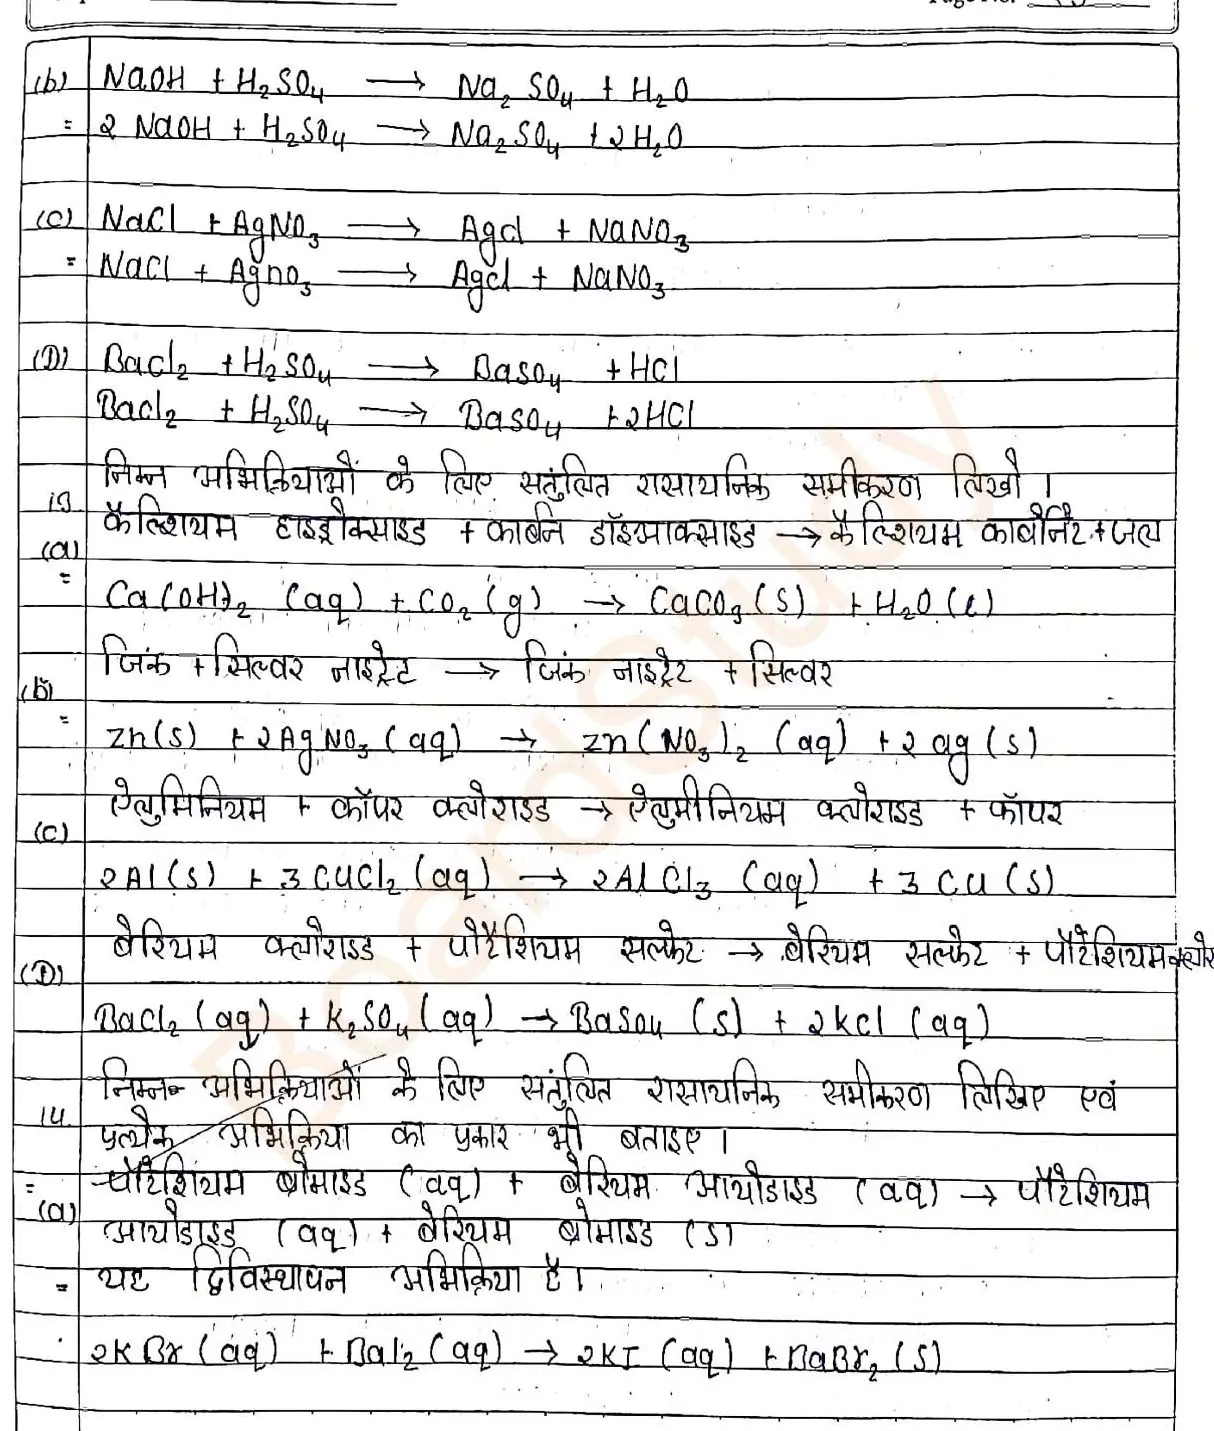 (b) NaOH + H₂SO₄ ⟶ Na₂SO₄ + H₂O
= 2 NaOH + H₂SO₄ ⟶ Na₂SO₄ + 2H₂O
(C) NaCl + AgNO₃ ⟶ Agcl + NaNO₃
= NaCl + Agno₃ ⟶ Agcl + NaNO₃
(D) Bacl₂ + H₂SO₄ ⟶ Baso₄ + HCl
Bacl₂ + H₂SO₄ ⟶ BaSO₄ + 2HCl
निम्न अभिक्रियाओं के लिए संतुलित रासायनिक समीकरण लिखो ।
13
(a) कैल्शियम हाइड्रोक्साइड + कार्बन डॉइआक्साइड → कैल्शियम कार्बोनेट + जल
= Ca(OH)₂ (aq) + CO₂ (g) → CaCO₃ (s) + H₂O (l)
(b) जिंक + सिल्वर नाइट्रेट → जिंक नाइट्रेट + सिल्वर
= zn(s) + 2AgNO₃ (aq) → zn(NO₃)₂ (aq) + 2 ag (s)
(c) ऐलुमिनियम + कॉपर क्लोराइड → ऐलुमीनियम क्लोराइड + कॉपर
2Al(s) + 3 CuCl₂ (aq) → 2AlCl₃ (aq) + 3 Cu (s)
(D) बेरियम क्लोराइड + पोटैशियम सल्फेट → बेरियम सल्फेट + पोटैशियम क्लोर
BaCl₂ (aq) + K₂SO₄ (aq) → BaSO₄ (s) + 2kCl (aq)
निम्न अभिक्रियाओं के लिए संतुलित रासायनिक समीकरण लिखिए एवं
14. प्रत्येक अभिक्रिया का प्रकार भी बताइए ।
= (a) पोटैशियम ब्रोमाइड (aq) + बेरियम आयोडाइड (aq) → पोटैशियम
आयोडाइड (aq) + बेरियम ब्रोमाइड (s)
= यह द्विविस्थापन अभिक्रिया है।
2KBr (aq) + BaI₂ (aq) → 2KI (aq) + BaBr₂ (s)
BoardStudy